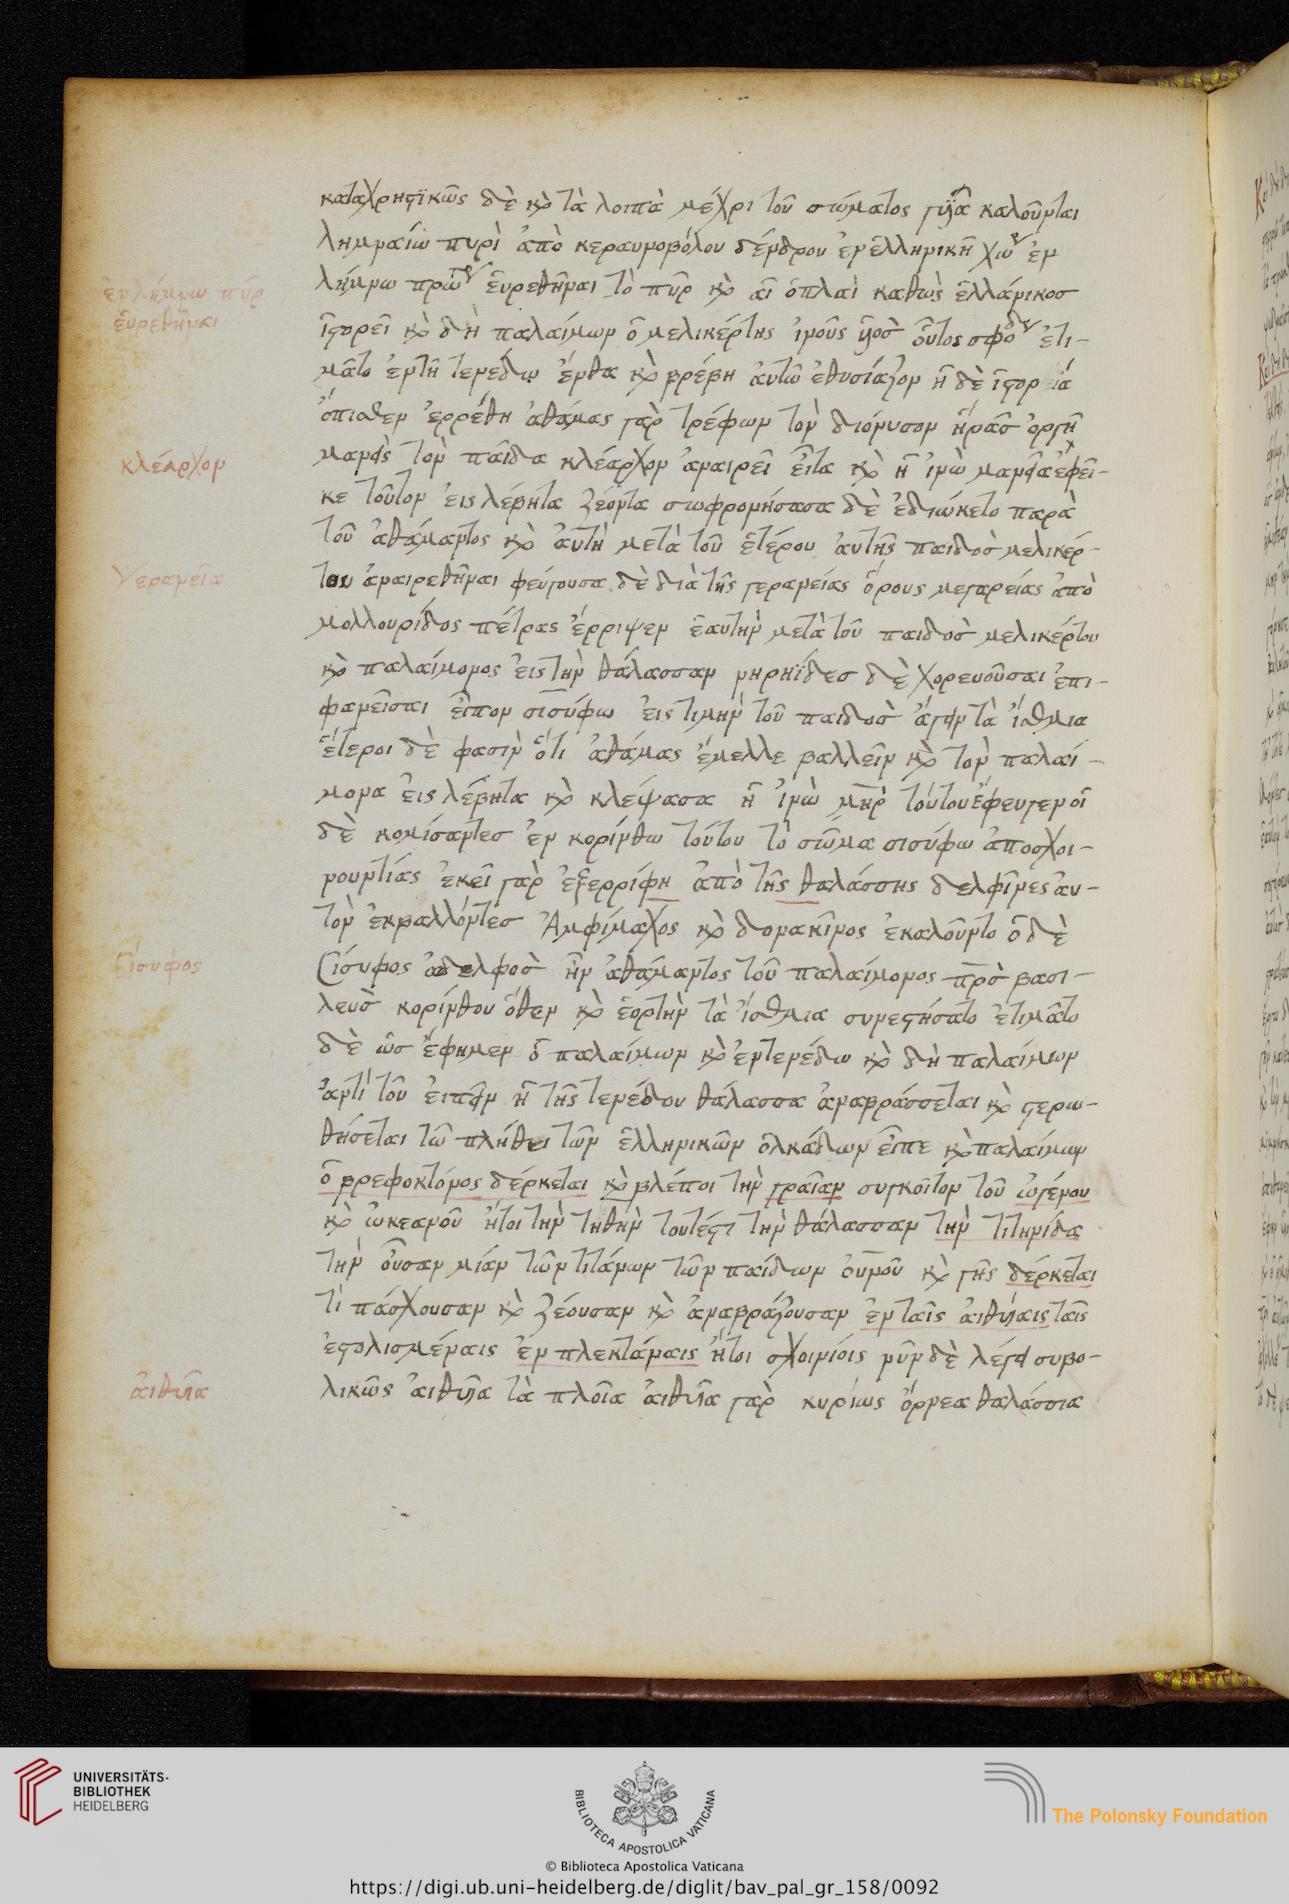 καταχρηστϊκῶς δὲ κὸ τὰ λοιπὰ μέχρι τοῦ στώματος γυῖα καλοῦνται
λημναίω πυρὶ ἀπὸ κεραυνοβόλου δένδρου ἐν ἑλληνικῆ χω ἐν
ἐν λήμνω πῦρ
εὑρεθῆναι
λήμνω πρῶ εὑρεθῆναι τὸ πῦρ κὸ αἱ ὁπλαὶ καθὼς ἑλλάνικοσ
ἱστορεῖ κὸ δὴ παλαίμων ὁ μελικέρτης ἰνοῦς ὑιὸσ οὗτος σφο ἐτι-
μᾶτο ἐντῆ τενέδω ἔνθα κὸ βρέβη ἀυτῶ ἐθυσίαζον ἡ δὲ ἱστορ ία
ὄπισθεν ἐρρέθη ἀθάμας γὰρ τρέφων τὸν διόνυσον ἥρασ ὀργῆ
κλέαρχον
μανεὶς τὸν παῖδα κλέαρχον ἀναιρεῖ εἶτα κὸ ἡ ἰνὼ μανεῖσα ἐφεῖ-
κε τοῦτον εἰς λέβητα ζέοντα σωφρονήσασα δὲ ἐδιώκετο παρὰ
τοῦ ἀθάμαντος κὸ ἀυτὴ μετὰ τοῦ ἑτέρου ἀυτῆς παιδοσ μελικέρ-
γερανεῖα
του ἀναιρεθῆναι φεύγουσα δὲ διὰ τῆς γερανείας ὄρους μεγαρείας ἀπὸ
μολλουρίδος πέτρας ἔρριψεν ἑαυτὴν μετὰ τοῦ παιδοσ μελικέρτου
κὸ παλαίμονος εἰς τὴν θάλασσαν νηρηΐδεσ δὲ χορευοῦσαι ἐπι-
φανεῖσαι εἶπον σισύφω εἰς τιμὴν τοῦ παιδοσ ἄγειν τὰ ἴσθμια
ἕτεροι δὲ φασὶν ὅτι ἀθάμας ἔμελλε βαλλεῖν κὸ τὸν παλαί-
μονα εἰς λέβητα κὸ κλέψασα ἡ ἰνὼ μηρ τούτου ἔφευγεν οἱ
δὲ κομίσαντεσ ἐν κορίνθω τούτου τὸ σῶμα σισύφω ἀποσχοι-
νουντιάς ἐκεῖ γὰρ ἐξερρίφη ἀπὸ τῆς θαλάσσης δελφῖνες ἀυ-
τὸν ἐκβαλλόντεσ Ἀμφίμαχος κὸ δονακῖνος ἐκαλοῦντο ὁ δὲ
Σίσυφος
Σίσυφος ἀδελφοσ ἦν ἀθάμαντος τοῦ παλαίμονος προσ βασι-
λευσ κορίνθου ὅθεν κὸ ἑορτὴν τὰ ἴσθμια συνεστήσατο ἐτιμᾶτο
δὲ ὡσ ἔφημεν ὁ παλαίμων κὸ ἐντενέδω κὸ δὴ παλαίμων
ἀντὶ τοῦ εἰπεῖν ἡ τῆς τενέδου θάλασσα ἀναβράσσεται κὸ στενω-
θήσεται τῶ πλήθει τῶν ἑλληνικῶν ὁλκάδων εἶπε κὸ παλαίμων
ὁ βρεφοκτόνος δέρκεται κὸ βλέποι τὴν γραῖαν συγκοῖτον τοῦ ὠγένου
κὸ ὠκεανοῦ ἤτοι τὴν τηθὴν τουτέστι τὴν θάλασσαν τὴν τιτηνίδα
τὴν οὖσαν μίαν τῶν τιτάνων τῶν παίδων ουνοῦ κὸ γῆς δέρκεται
τὶ πάσχουσαν κὸ ζέουσαν κὸ ἀναβράζουσαν ἐν ταῖς ἀιθυίαις ταῖς
ἐστολισμέναις ἐν πλεκτάναις ἤτοι σχοινίοις νῦν δὲ λέγει συβο-
ἀιθυῖα
λικῶς ἀιθυῖα τὰ πλοῖα ἀιθυῖα γὰρ κυρίως ὄρνεα θαλάσσια
UNIVERSITÄTS-
BIBLIOTHEK
HEIDELBERG
BIBLIOTECA APOSTOLICA VATICANA
The Polonsky Foundation
© Biblioteca Apostolica Vaticana
https://digi.ub.uni-heidelberg.de/diglit/bav_pal_gr_158/0092